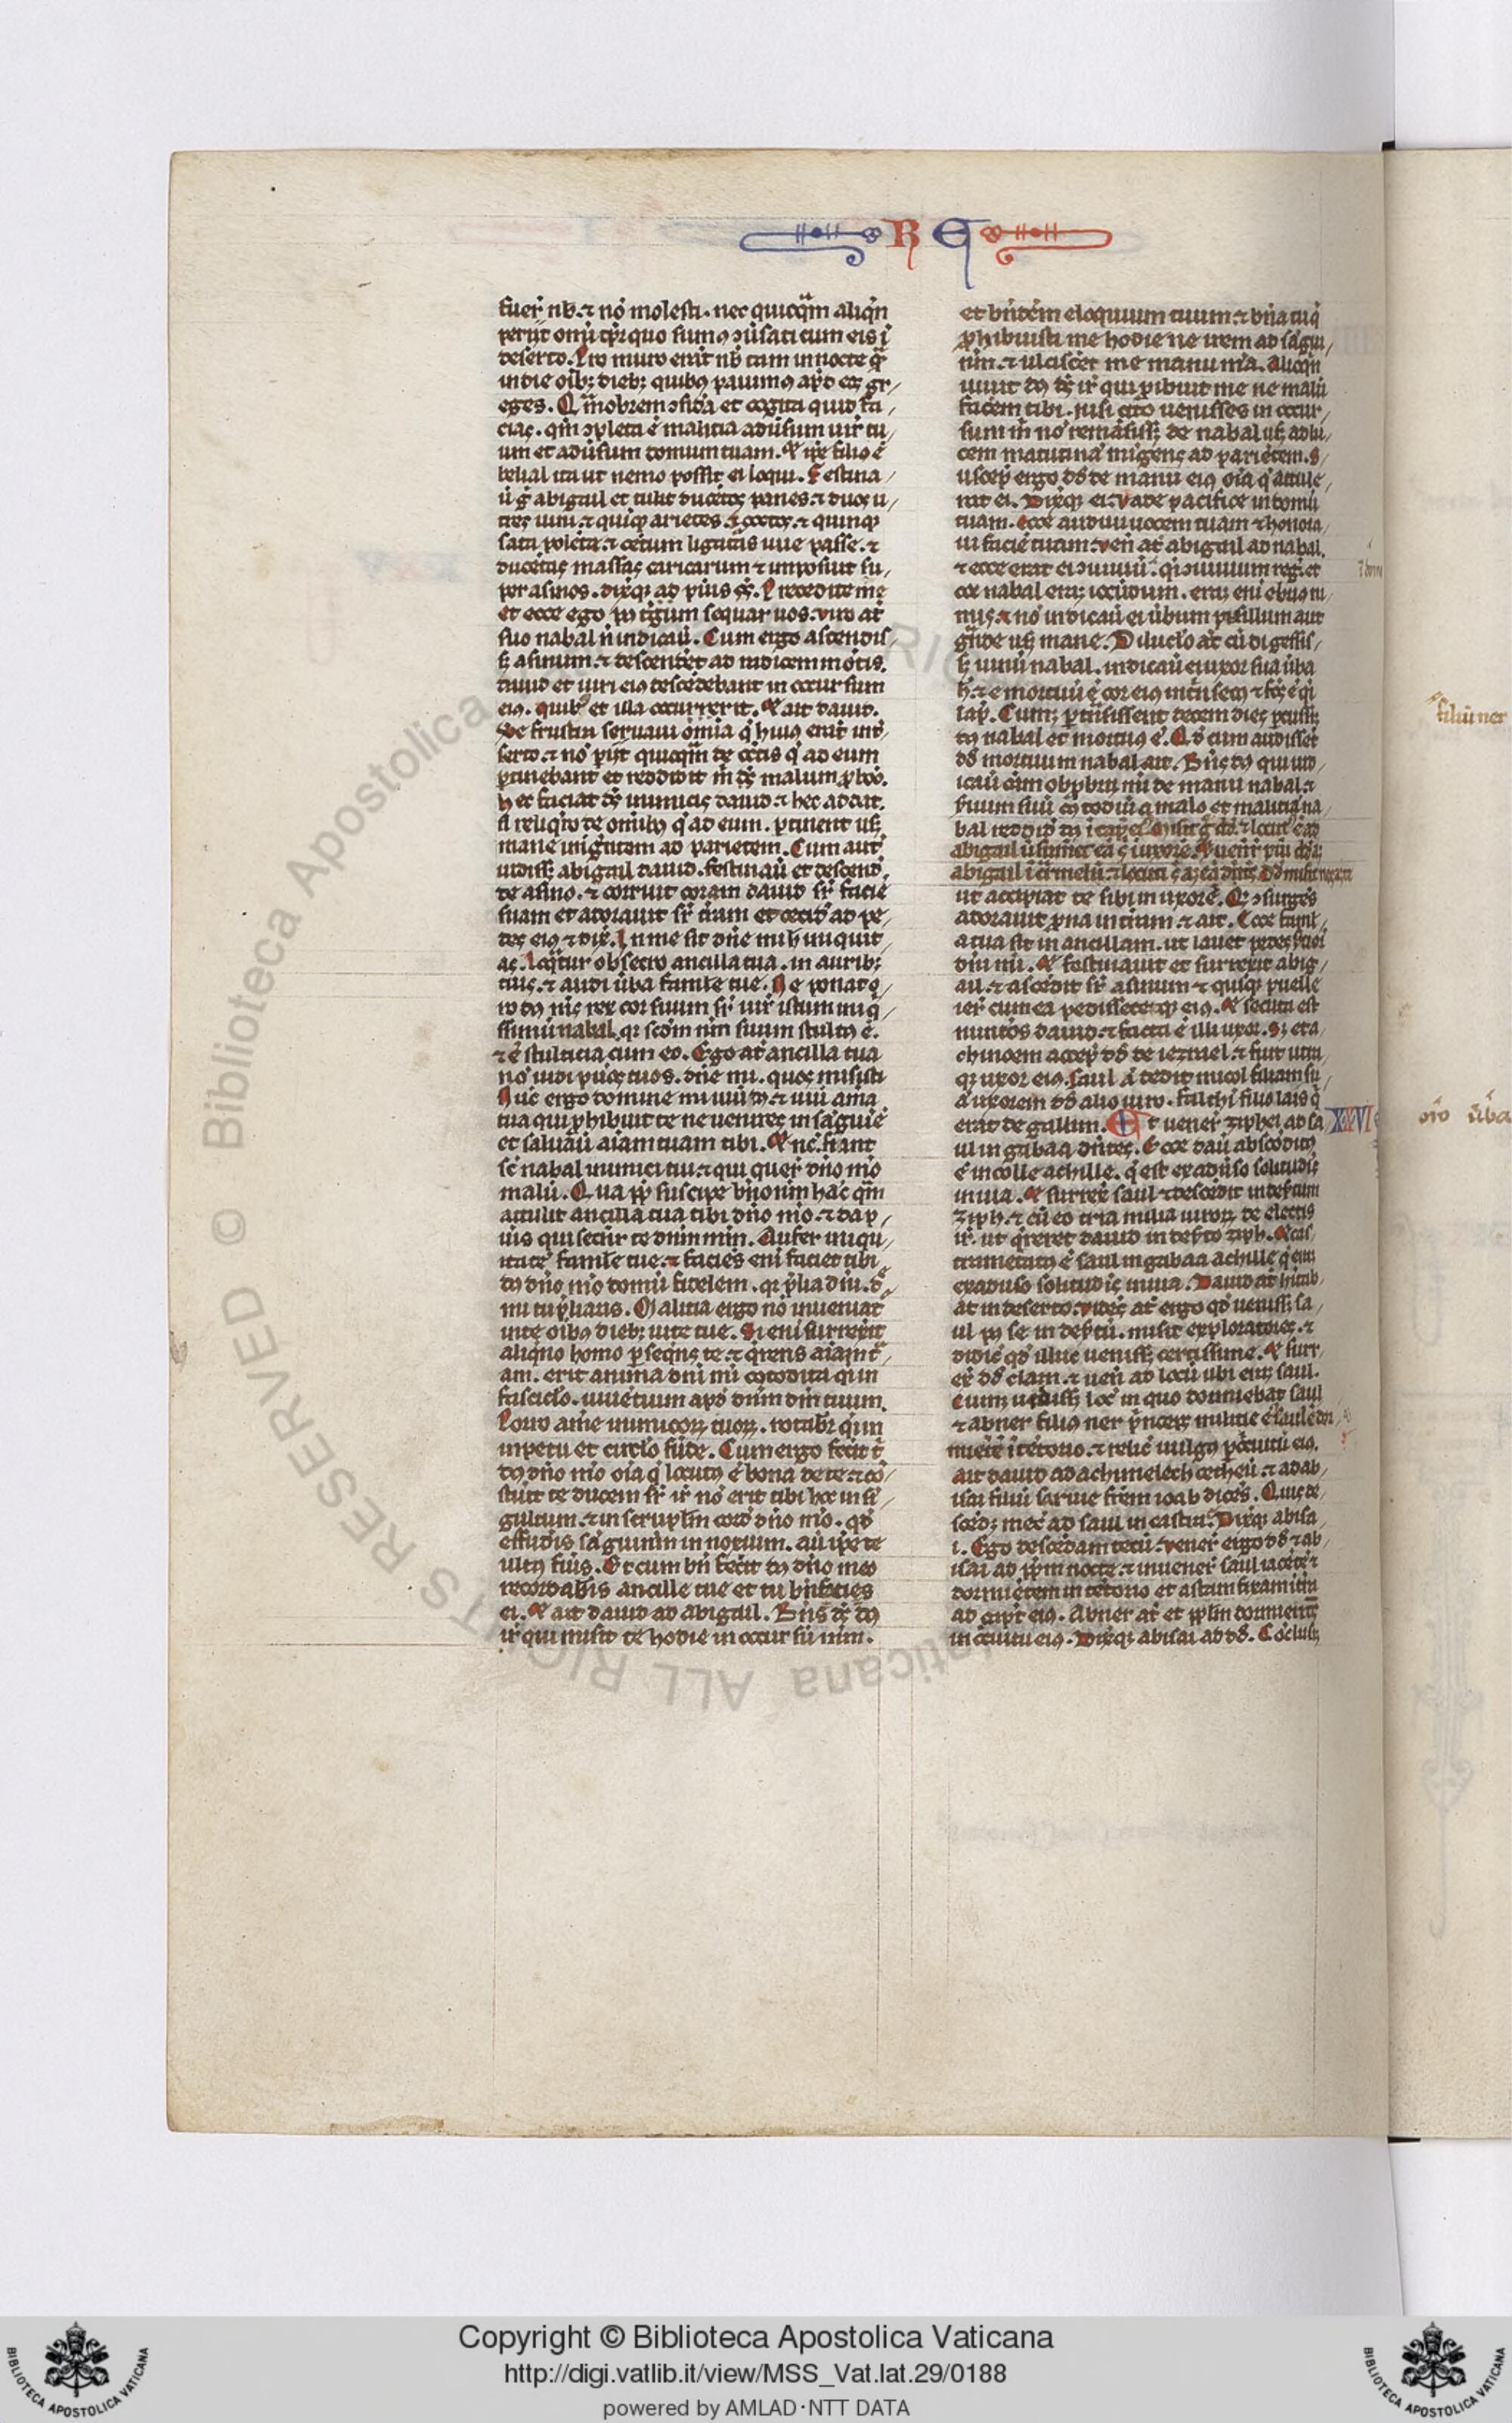 R E
fuer̄ nb̄. ⁊ nō molesti. nec quicq̄m aliqn̄
periit om̄i tp̄r quo fumꝰ ɔūsati cum eis ī
deserto. Pro muro erāt nb̄ tam in nocte q̄
in die oīb; dieb; quibꝰ pauimꝰ ap̄d eos gr/
eges. Q̄mobrem ɔsid̄a et cogita quid fa/
cias. qm̄ ɔpleta ē malitia adūsum uir̄ tu/
um et adūsum domum tuam. ⁊ ip̄e filiꝰ ē
belial ita ut nemo possit ei loqui. Festina/
ū ḡ abigail et tulit ducētos panes. ⁊ duos u/
tres uini. ⁊ quīqꝫ arietes ⁊ coctos. ⁊ quinqꝫ
sata polēta. ⁊ cētum ligatās uue passe. ⁊
ducētas massas caricarum ⁊ imposuit su/
per asinos. dixitqꝫ ad p̄uis s̄. Precedite me
et ecce ego pꝰ t̄gum sequar uos. viro at̄
suo nabal n̄ indicau̅. Cum ergo ascendis/
s; asinum. ⁊ descendet ad radicem mōtis.
dauid et uiri eiꝰ descēdebant in occursum
eiꝰ. quibꝰ et illa occurrerit. ⁊ ait dauid.
Ve frustra seruaui omīa q̄ huiꝰ erāt in d/
serto. ⁊ nō p̄iit quicq̄m de cūctis q̄ ad eum
p̄tinebant et reddidit m̄ malum p̄ bōo.
hec faciat ds̄ inimicis dauid ⁊ hec addat.
si reliq̄ro de omībꝰ q̄ ad eum p̄tinent usꝫ
mane mīgentem ad parietem. Cum aut̄
uidiss; abigail dauid. festinau̅ et descend̄
de asino. ⁊ corruit coram dauid sr̄ faciē
suam et adorauit sr̄ t̄ram et cecid̄ ad pe/
des eiꝰ ⁊ dix̄. In me sit dn̄e mi h̄ iniquit/
as. Loq̄tur obsecro ancilla tua in auribꝫ
tuis. ⁊ audi ūba famle tue. Ne ponat o/
ro dn̄s m̄s rex cor suum sr̄ uir̄ istum iniq̄/
ssimū nabal. q̄ scdm̄ nm̄ suum stultꝰ ē.
⁊ ē stultitia cum eo. Ego at̄ ancilla tua
nō uidi pūos tuos. dn̄e mi. quos misisti
Nūc ergo domine mi uiuit dn̄s ⁊ uiuit aīma
tua qui p̄hibuit te ne uenires in sāguīē
et saluāū aīam tuam tibi. ⁊ nc̄ fiant
sc̄ nabal inimici tui. ⁊ qui quer̄ dn̄o mō
malū. Quapp̄ suscipe bn̄onim hāc q̄m
attulit ancilla tua tibi dn̄o mō. ⁊ da p/
uis qui secūtr te dnm̄ mm̄. Aufer iniqu/
itatē famle tue. ⁊ faciēs eni faciet tibi
dn̄s dn̄o mō domū fidelem. q̄ p̄lia dn̄i. d/
mi tu p̄liaris. Malitia ergo nō inueniat̄
in te oībꝰ diebꝫ uite tue. Si eni surrexit
aliqn̄o homo p̄seqn̄s te. ⁊ q̄rens aīam t/
am. erit anima dn̄i mi custodita q̄ in
fasciclo. uiuētium apd dnm̄ dm̄ tuum.
Porro aīme inimicoꝝ tuoꝝ. rotabr̄ q̄ in
impetu et circlo fūde. Cum ergo fecit t̄
dn̄s dn̄o mō oīa q̄ locutꝰ ē bona de te. ⁊ cō/
stūit te ducem sr̄ ir̄ nō erit tibi hoc in si/
gultum. ⁊ in scruplm̄ cord̄ dn̄o mō. qd̄
effudis sāguinm in noxium. aū ip̄e te
ultꝰ fūis. Et cum bn̄ fecit dn̄s dn̄o meo
recordabis ancille tue et tu bn̄facies
ei. ⁊ ait dauid ad abigail. Bn̄s ds̄ dn̄s
ir̄ qui misit te hodie in occursū mm̄.
et bn̄dc̄m eloquium tuum. ⁊ bn̄a tu q̄
p̄hibuisti me hodie ne irem ad sāgui/
nm̄. ⁊ ulciscēr me manu m̄a. Alioqn̄
uiuit dn̄s ds̄ ir̄ qui p̄ibuit me ne malū
facēm tibi. nisi cito uenisses in occur/
sum m̄ nō remāsiss; de nabal usꝫ ad lu/
cem matutinā mīgens ad pariētem. S/
uscep̄ ergo dd̄ de manu eiꝰ oīa q̄ attule/
rat ei. Dixitqꝫ ei. Vade pacifice in domū
tuam. Ecce audiui uocem tuam ⁊ honora/
ui faciē tuam. Ven̄ at̄ abigail ad nabal.
⁊ ecce erat ei ɔuiuiū. q̄ ɔuiuium reḡ. et
cor nabal erat iocūdum. erat eni ebriꝰ ni/
mis. ⁊ nō indicau̅ ei ūbum pusillum aut
gn̄de usꝫ mane. Diluclo at̄ cū digessis/
s; uinū nabal. indicau̅ ei uxor sua ūba
h̄. ⁊ emortuū ē cor eiꝰ int̄nsecꝰ ⁊ fcs̄ ē q̄i
lap̄. Cumqꝫ p̄tn̄sissent decem dies p̄cussit
dn̄s nabal et mortuꝰ ē. Qd̄ cum audisset
dd̄ mortuum nabal ait. Bn̄s dn̄s qui iud/
icau̅ cām obp̄brii mi de manu nabal. ⁊
p̄uum suū custodiū a malo et malitiā na/
bal reddid̄ dn̄s ī cap̄ eiꝰ. Misit ḡ dd̄ ⁊ locutꝰ ē ad
abigail ut sumet eā s̄ ī uxorē. ⁊ uen̄r p̄ui dd̄ ad
abigail ī c̄rmelū. ⁊ locuti s̄ ad eā dn̄tes. Dd̄ misit nos ad te
ut accipiat te sibi in uxorē. Q̄ ɔsurgēs
adorauit p̄na in t̄ram ⁊ ait. Ecce faml̄/
a tua sit in ancillam. ut lauet pedes p̄uoꝝ
dn̄i mi. ⁊ festinauit et surrexit abig/
ail. ⁊ ascēdit sr̄ asinum ⁊ quīqꝫ puelle
ier̄ cum ea pedissece eiꝰ. ⁊ secuta est
nuntios dauid. ⁊ facta ē illi uxor. Sꝫ et a/
chinoem accep̄ dd̄ de iezrael. ⁊ fuit utra/
qꝫ uxor eiꝰ. Saul at̄ dedit micol filiam su/
ā uxorem dd̄ alio uiro. falchi filio lais q̄
erat de gallim. Et uener̄ ziphei ad sa/
XXVI
ul in gabaa dn̄tes. Ecce dau̅ abscōditꝰ
ē in colle achille. q̄ est exadūso solitudis̄
inuia. ⁊ surrex̄ saul ⁊ descēdit in des̄tum
ziph. ⁊ cū eo tria milia uiroꝝ de electis
ir̄. ut q̄reret dauid in des̄to ziph. ⁊ cas/
trametatꝰ ē saul in gabaa achille q̄ erat
exadūso solitudis̄ inuia. Dauid at̄ hitab/
at in deserto. Vidēs at̄ ergo qd̄ ueniss; sa/
ul pꝰ se in des̄tū. misit exploratores. ⁊
didic̄ qd̄ illuc ueniss; certissime. ⁊ surr/
ex̄ dd̄ clam. ⁊ uen̄ ad locū ubi erat saul.
Cumqꝫ uidiss; loc̄ in quo dormiebat saul
⁊ abner filiꝰ ner p̄nceps militie ei. saulē dor/
miētē ī tētorio. ⁊ reliq̄ uulgꝰ p̄ c̄cuitū eiꝰ.
ait dauid ad achimelech cetheū. ⁊ ad ab/
isai filiū saruie fr̄em ioab dicēs. Quis de/
scēdꝫ mec̄ ad saul in castra. Dixitqꝫ abisa/
i. Ego descēdam tecū. Vener̄ ergo dd̄ ⁊ ab/
isai ad pp̄lm nocte. ⁊ inuener̄ saul iacētē ⁊
dormiētem in tētorio et astam fixam in t̄ra
ad cap̄t eiꝰ. Abner at̄ et pp̄lm dormientes
in c̄cuitu eiꝰ. Dixitqꝫ abisai ad dd̄. Cōclusit
filiū ner
oīo ūba
© Biblioteca Apostolica Vaticana ALL RIGHTS RESERVED
Copyright © Biblioteca Apostolica Vaticana
http://digi.vatlib.it/view/MSS_Vat.lat.29/0188
powered by AMLAD·NTT DATA
BIBLIOTECA APOSTOLICA VATICANA
BIBLIOTECA APOSTOLICA VATICANA